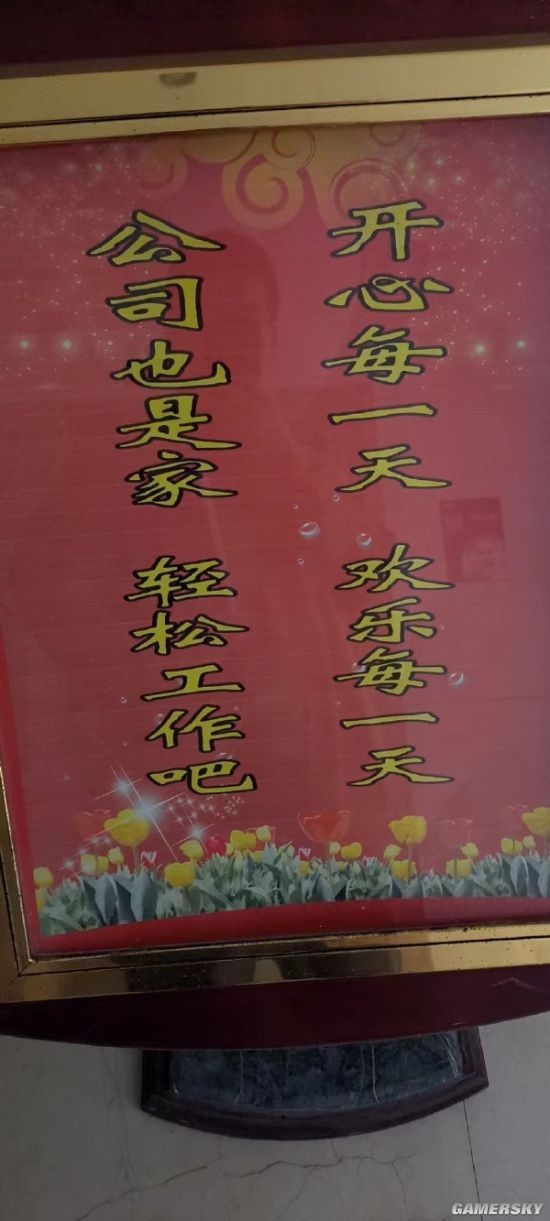 开心每一天 欢乐每一天
公司也是家 轻松工作吧
GAMERSKY